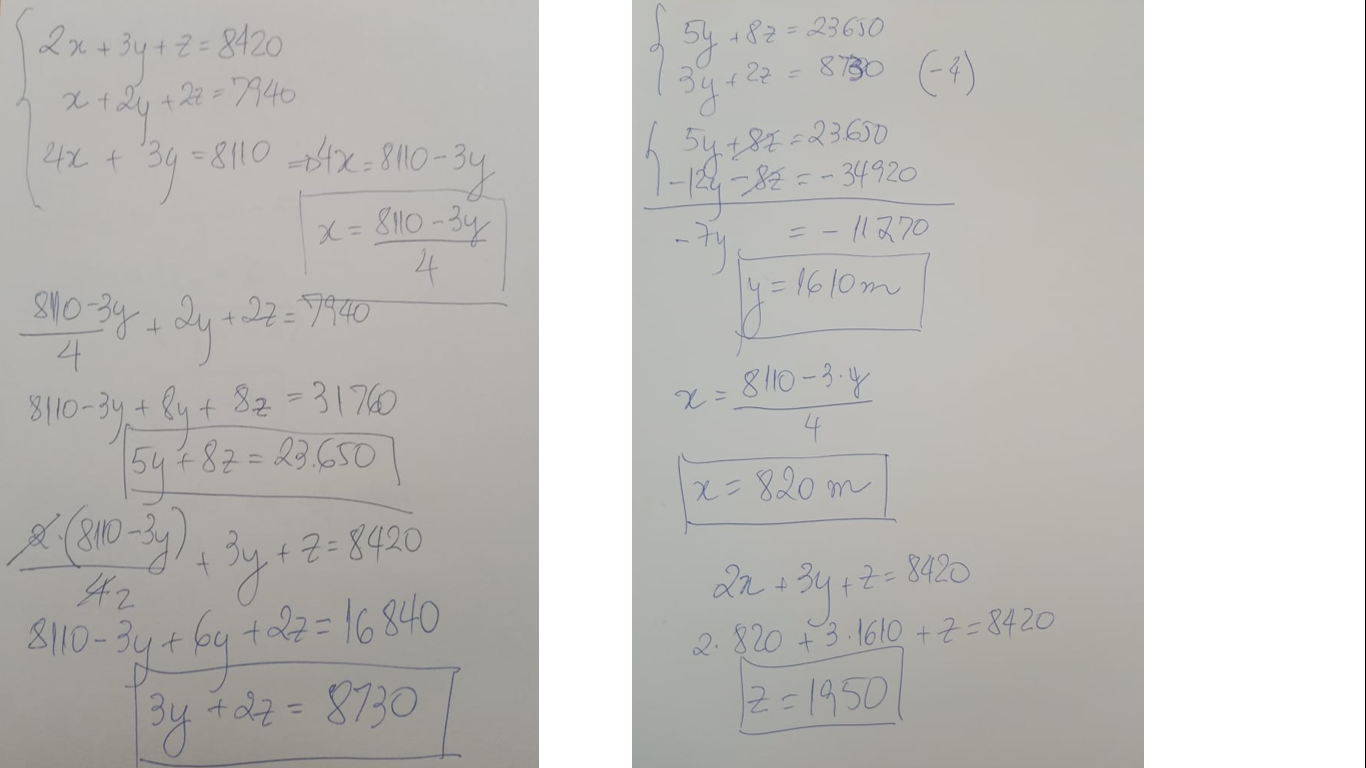 2x + 3y + z = 8420
x + 2y + 2z = 7940
4x + 3y = 8110 ⇒ 4x = 8110 - 3y
x = (8110 - 3y)/4
(8110 - 3y)/4 + 2y + 2z = 7940
8110 - 3y + 8y + 8z = 31760
5y + 8z = 23.650
2·(8110 - 3y)/4 2 + 3y + z = 8420
8110 - 3y + 6y + 2z = 16840
3y + 2z = 8730
5y + 8z = 23650
3y + 2z = 8730 (-4)
5y + 8z = 23.650
-12y - 8z = -34920
-7y = -11270
y = 1610 m
x = (8110 - 3·y)/4
x = 820 m
2x + 3y + z = 8420
2. 820 + 3.1610 + z = 8420
z = 1950